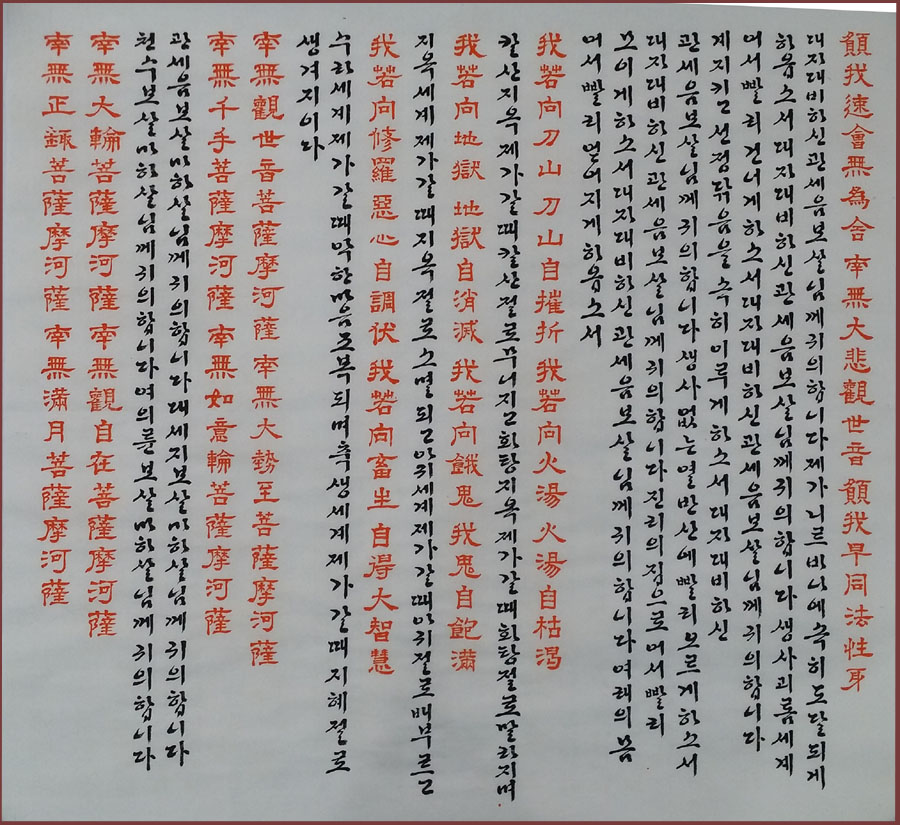 願我速會無為舍 南無大悲觀世音 願我早同法性身
대자대비하신관세음보살님께귀의합니다제가니르바나에속히도달되게
하옵소서대자대비하신관세음보살님께귀의합니다생사괴롬세계
어서빨리건너게하소서대자대비하신관세음보살님께귀의합니다
계지키고선정닦음을속히이루게하소서대자대비하신
관세음보살님께귀의합니다생사없는열반산에빨리오르게하소서
대자대비하신관세음보살님께귀의합니다진리의집으로어서빨리
모이게하소서대자대비하신관세음보살님께귀의합니다여래의몸
어서빨리얻어지게하옵소서
我若向刀山 刀山自摧折 我若向火湯 火湯自枯渴
칼산지옥제가갈때칼산절로무너지고화탕지옥제가갈때화탕절로말라지며
我若向地獄 地獄自消滅 我若向餓鬼 我鬼自飽滿
지옥세계제가갈때지옥절로소멸되고아귀세계제가갈때아귀절로배부르고
我若向修羅惡心自調伏 我若向畜生 自得大智慧
수라세계제가갈때악한마음조복되며축생세계제가갈때지혜절로
생겨지이다
南無觀世音菩薩摩河薩 南無大勢至菩薩摩河薩
南無千手菩薩摩河薩 南無如意輪菩薩摩河薩
관세음보살마하살님께귀의합니다대세지보살마하살님께귀의합니다
천수보살마하살님께귀의합니다여의륜보살마하살님께귀의합니다
南無大輪菩薩摩河薩 南無觀自在菩薩摩河薩
南無正趣菩薩摩河薩 南無滿月菩薩摩河薩